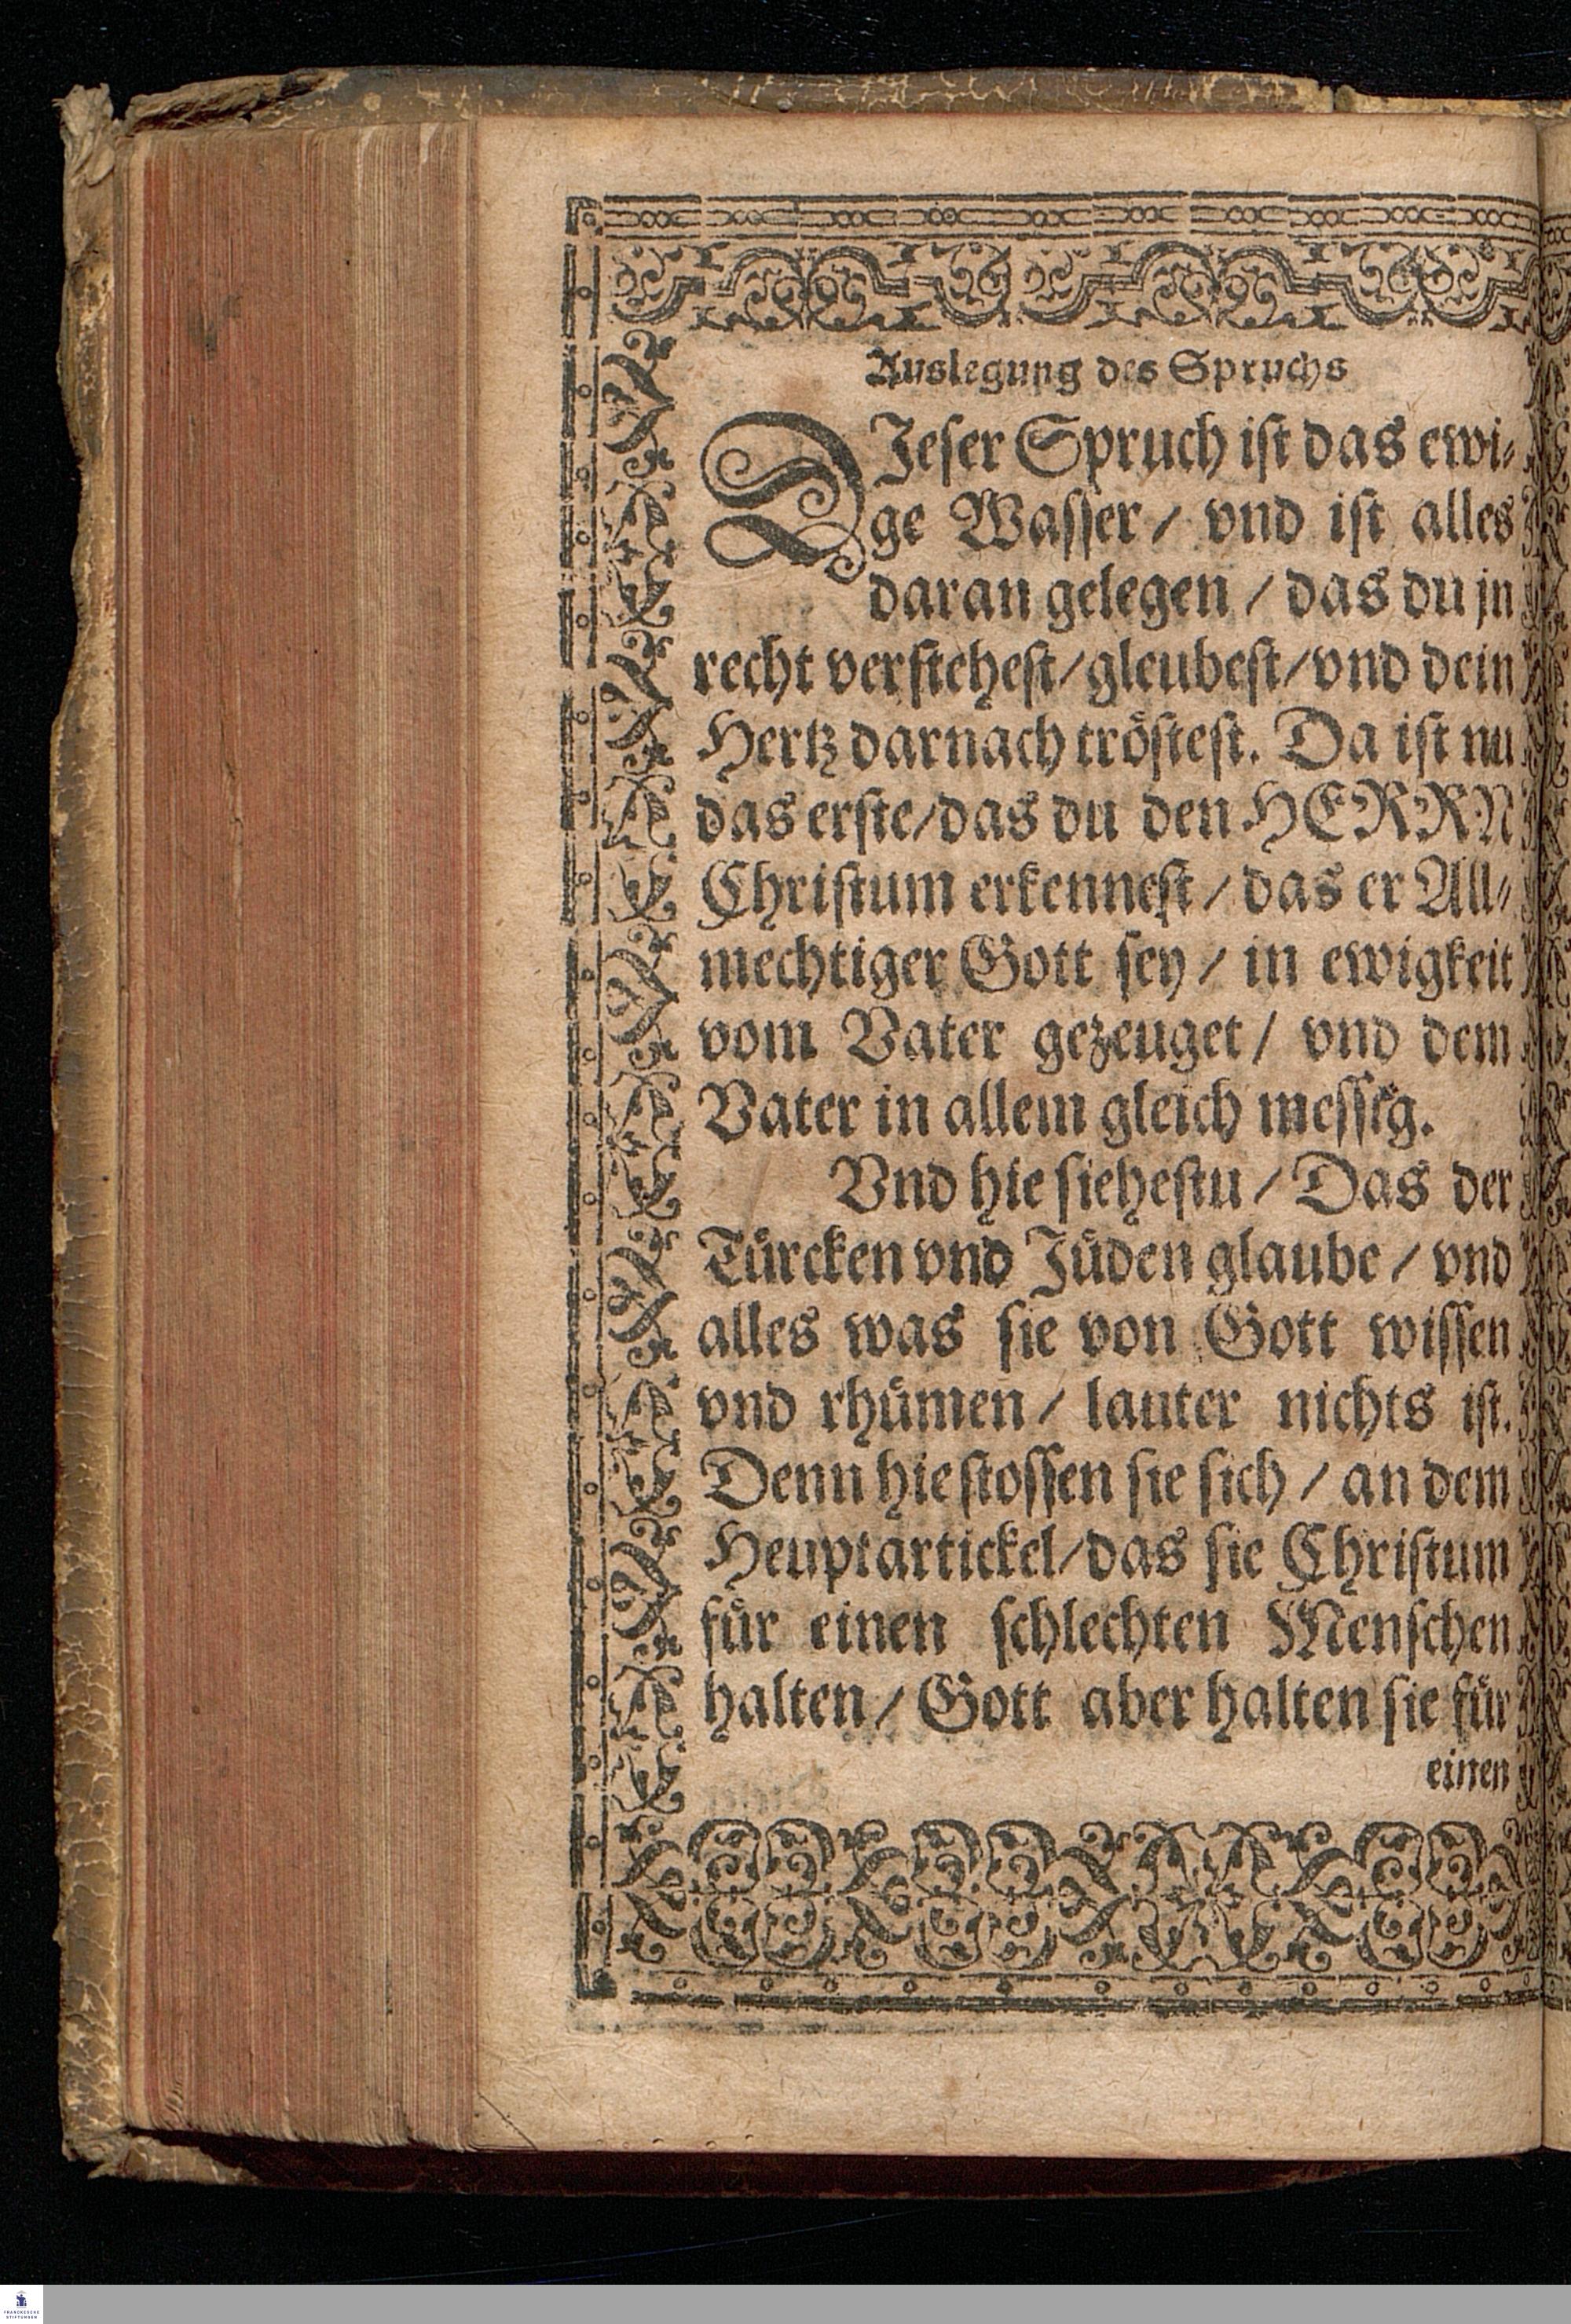 Auslegung des Spruchs
DIeser Spruch ist das ewi⸗
ge Wasser / vnd ist alles
daran gelegen / das du jn
recht verstehest / gleubest / vnd dein
Hertz darnach tröstest. Da ist nu
das erste / das du den HERRN
Christum erkennest / das er All⸗
mechtiger Gott sey / in ewigkeit
vom Vater gezeuget / vnd dem
Vater in allem gleich messig.
Vnd hie siehestu / Das der
Türcken vnd Jüden glaube / vnd
alles was sie von Gott wissen
vnd rhümen / lauter nichts ist.
Denn hie stossen sie sich / an dem
Heuptartickel / das sie Christum
für einen schlechten Menschen
halten / Gott aber halten sie für
einen
FRANCKESCHE
STIFTUNGEN